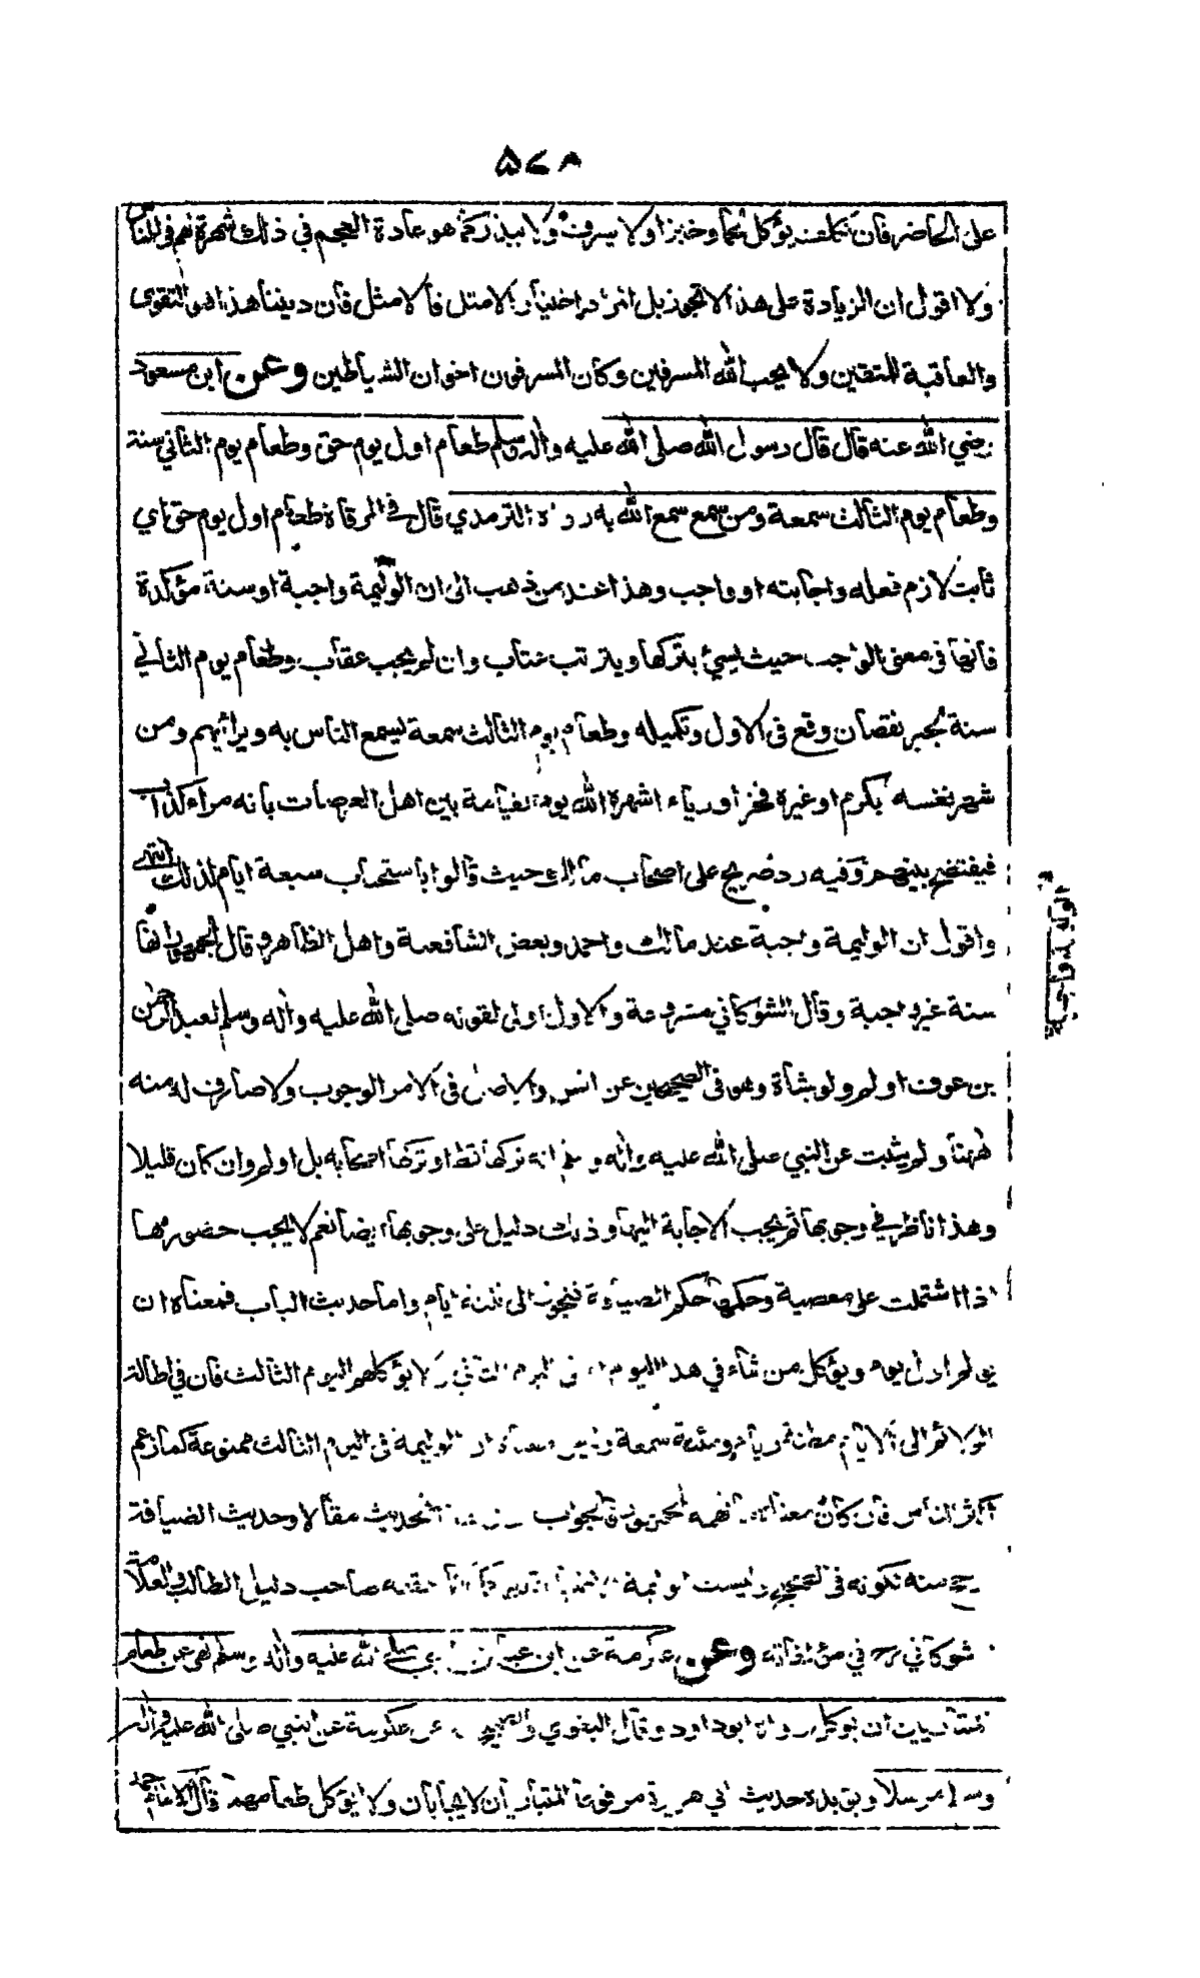 ۵۷۸
على الحاضر فان تكلف يؤكل لحما وخبزا ولا يسرف ولا يبذر كما هو عادة العجم في ذلك شهرة لهم في الناس
ولا اقول ان الزيادة على هذا لا تجوز بل الامثل فالامثل فان ديننا هذا هو التقوى
والعاقبة للمتقين ولا يحب الله المسرفين وكان المسرفون اخوان الشياطين وعن ابن مسعود
رضي الله عنه قال قال رسول الله صلى الله عليه واله وسلم طعام اول يوم حق وطعام يوم الثاني سنة
وطعام يوم الثالث سمعة ومن سمع سمع الله به رواه الترمذي قال في المرقاة طعام اول يوم حق اي
ثابت لازم فعله واجابته او واجب وهذا عند من ذهب الى ان الوليمة واجبة او سنة مؤكدة
فانها في معنى الواجب حيث يسيئ بتركها ويترتب عتاب وان لم يجب عقاب وطعام يوم الثاني
سنة يجبر نقصان وقع في الاول وتكميله وطعام يوم الثالث سمعة ليسمع الناس به ويرائيهم ومن
شهر نفسه بكرم او غيره فخرا ورياء اشهره الله يوم القيامة بين اهل العرصات بانه مراء كذاب
فيفتضح بينهم وفيه رد صريح على اصحاب مالك حيث قالوا باستحباب سبعة ايام لذلك انتهى
واقول ان الوليمة واجبة عند مالك واحمد وبعض الشافعية واهل الظاهر وقال الجمهور انها
سنة غير واجبة وقال الشوكاني مشروعة والاول اولى لقوله صلى الله عليه واله وسلم لعبد الرحمن
بن عوف اولم ولو بشاة وهو في الصحيحين عن انس والاصل في الامر الوجوب ولا صارف له منه
ههنا ولم يثبت عن النبي صلى الله عليه واله وسلم انه تركها قط او تركها اصحابه بل اولم وان كان قليلا
وهذا ناظر في وجوبها ثم يجب الاجابة اليها وذلك دليل على وجوبها ايضا نعم لا يجب حضورها
اذا اشتملت على معصية وحكمها حكم الضيافة فتجوز الى ثلثة ايام واما حديث الباب فمعناه ان
يولم اول يوم ويؤكل من شاء في هذا اليوم في اليوم الثاني ولا يؤكلهم اليوم الثالث فان في اطالة
الولائم الى الايام مظنة رياء ومئنة سمعة وليس معناه ان الوليمة في اليوم الثالث ممنوعة كما زعم
اكثر الناس فان كان معناه فهمه فالجواب الحديث مقالا وحديث الضيافة
سنه لكونه في الصحيح وليست الوليمة صاحب دليل الطالب والعلامة
شوكاني رح في مؤلفاته وعن عكرمة عن ابن عباس ان النبي صلى الله عليه واله وسلم نهى عن طعام
المتباريين ان يؤكل رواه ابوداود وقال البغوي والصحيح عن عكرمة عن النبي صلى الله عليه واله
وسلم مرسلا ويؤيده حديث ابي هريرة مرفوعا المتباريان لا يجابان ولا يؤكل طعامهما قال الامام احمد